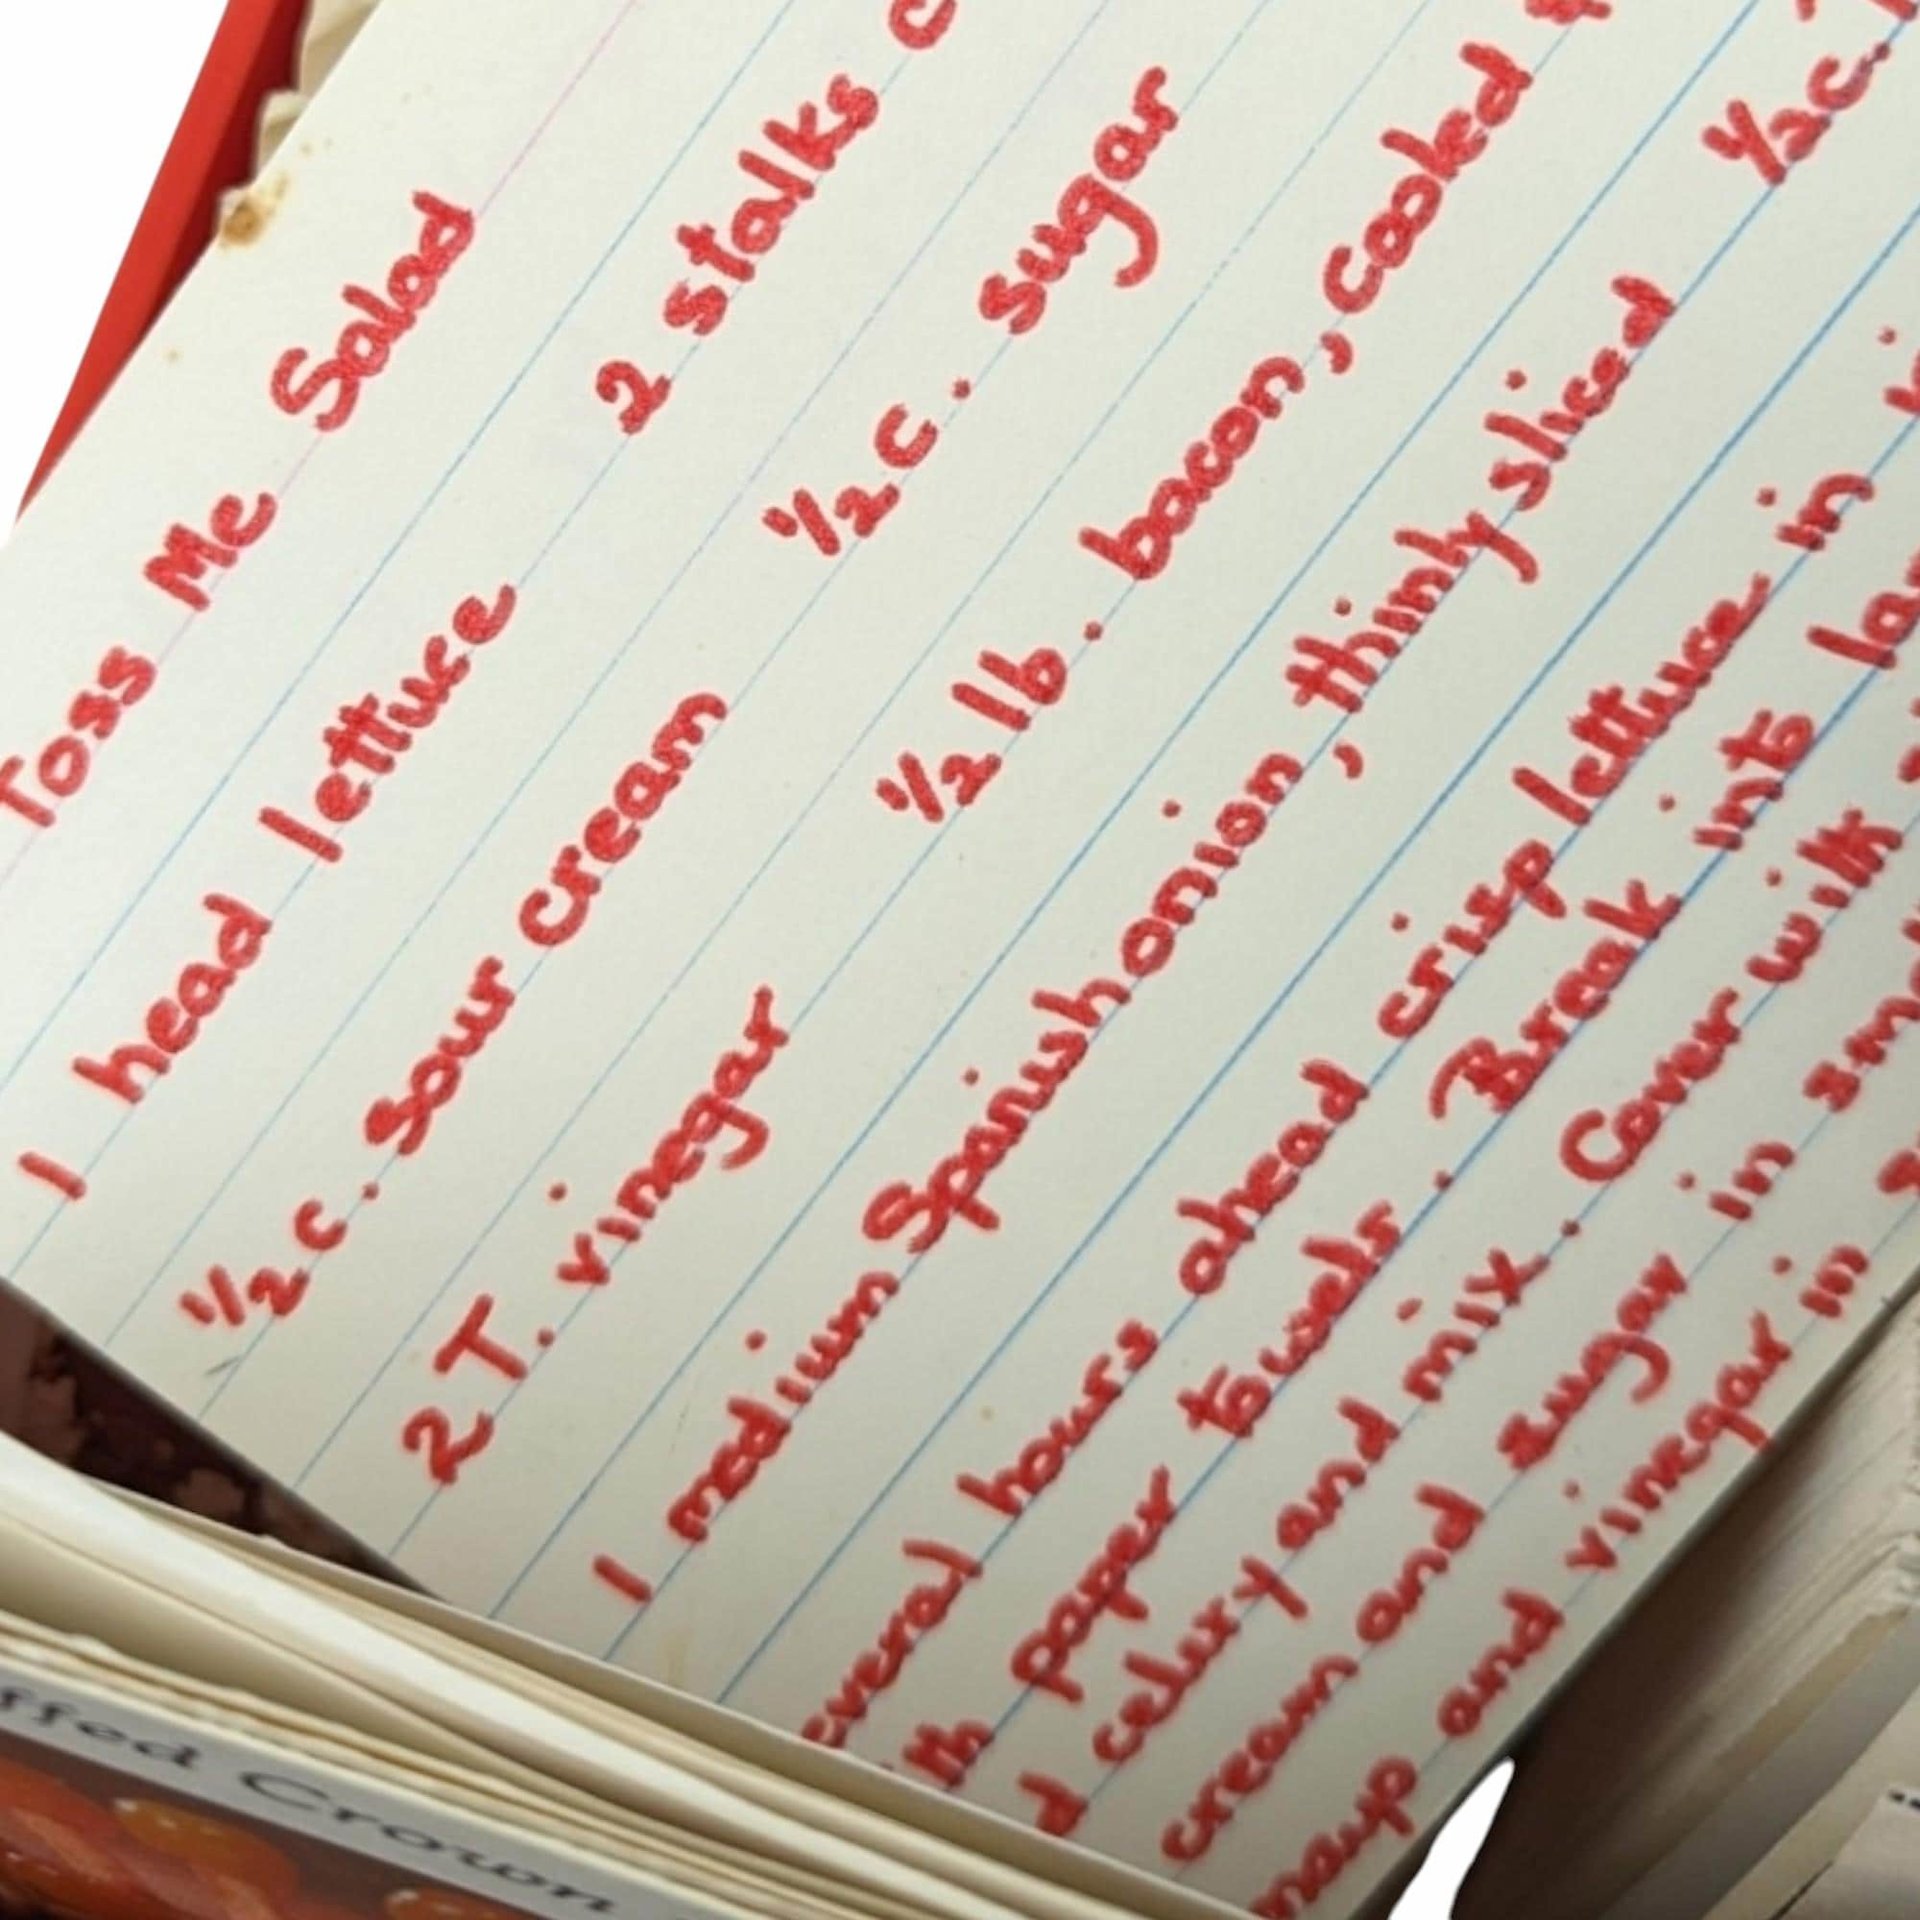 Toss Me Salad
1 head lettuce 2 stalks
1/2 c. sour cream 1/2 c. sugar
2 T. vinegar 1/2 lb. bacon, cooked
1 medium Spanish onion, thinly sliced 1/2 c.
hours ahead crisp lettuce in
paper towels. Break into
celery and mix. Cover with
cream and sugar in
and vinegar in
ffed Crown